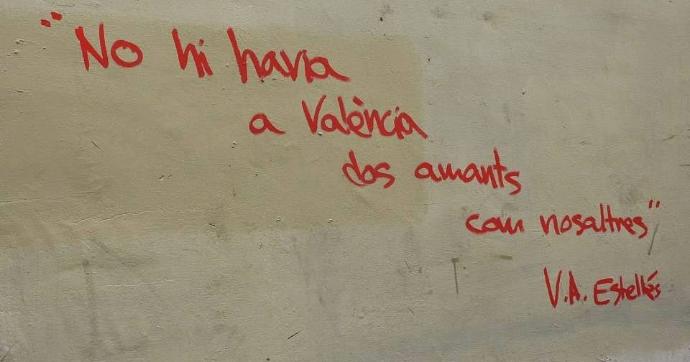 "No hi havia
a València
dos amants
com nosaltres"
V.A. Estellés